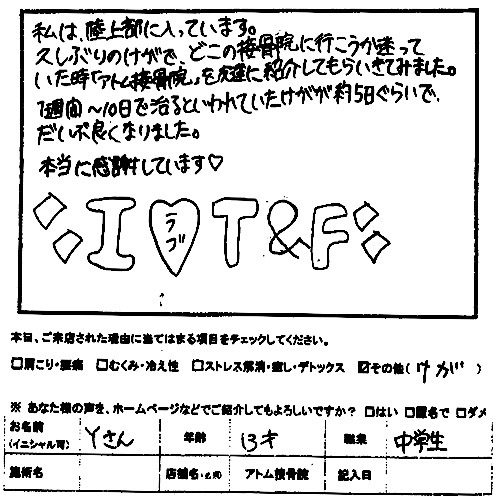 私は、陸上部に入っています。
久しぶりのけがで、どこの接骨院に行こうか迷って
いた時「アトム接骨院」を友達に紹介してもらいきてみました。
1週間〜10日で治るといわれていたけがが約5日ぐらいで、
だいぶ良くなりました。
本当に感謝しています♡
I ♡ラブ T&F
本日、ご来店された理由に当てはまる項目をチェックしてください。
□肩こり・腰痛 □むくみ・冷え性 □ストレス解消・癒し・デトックス ☑その他(けが)
※ あなた様の声を、ホームページなどでご紹介してもよろしいですか? □はい □匿名で □ダメ
お名前(イニシャル可) Yさん 年齢 13才 職業 中学生
施術名 店舗名 アトム接骨院 記入日